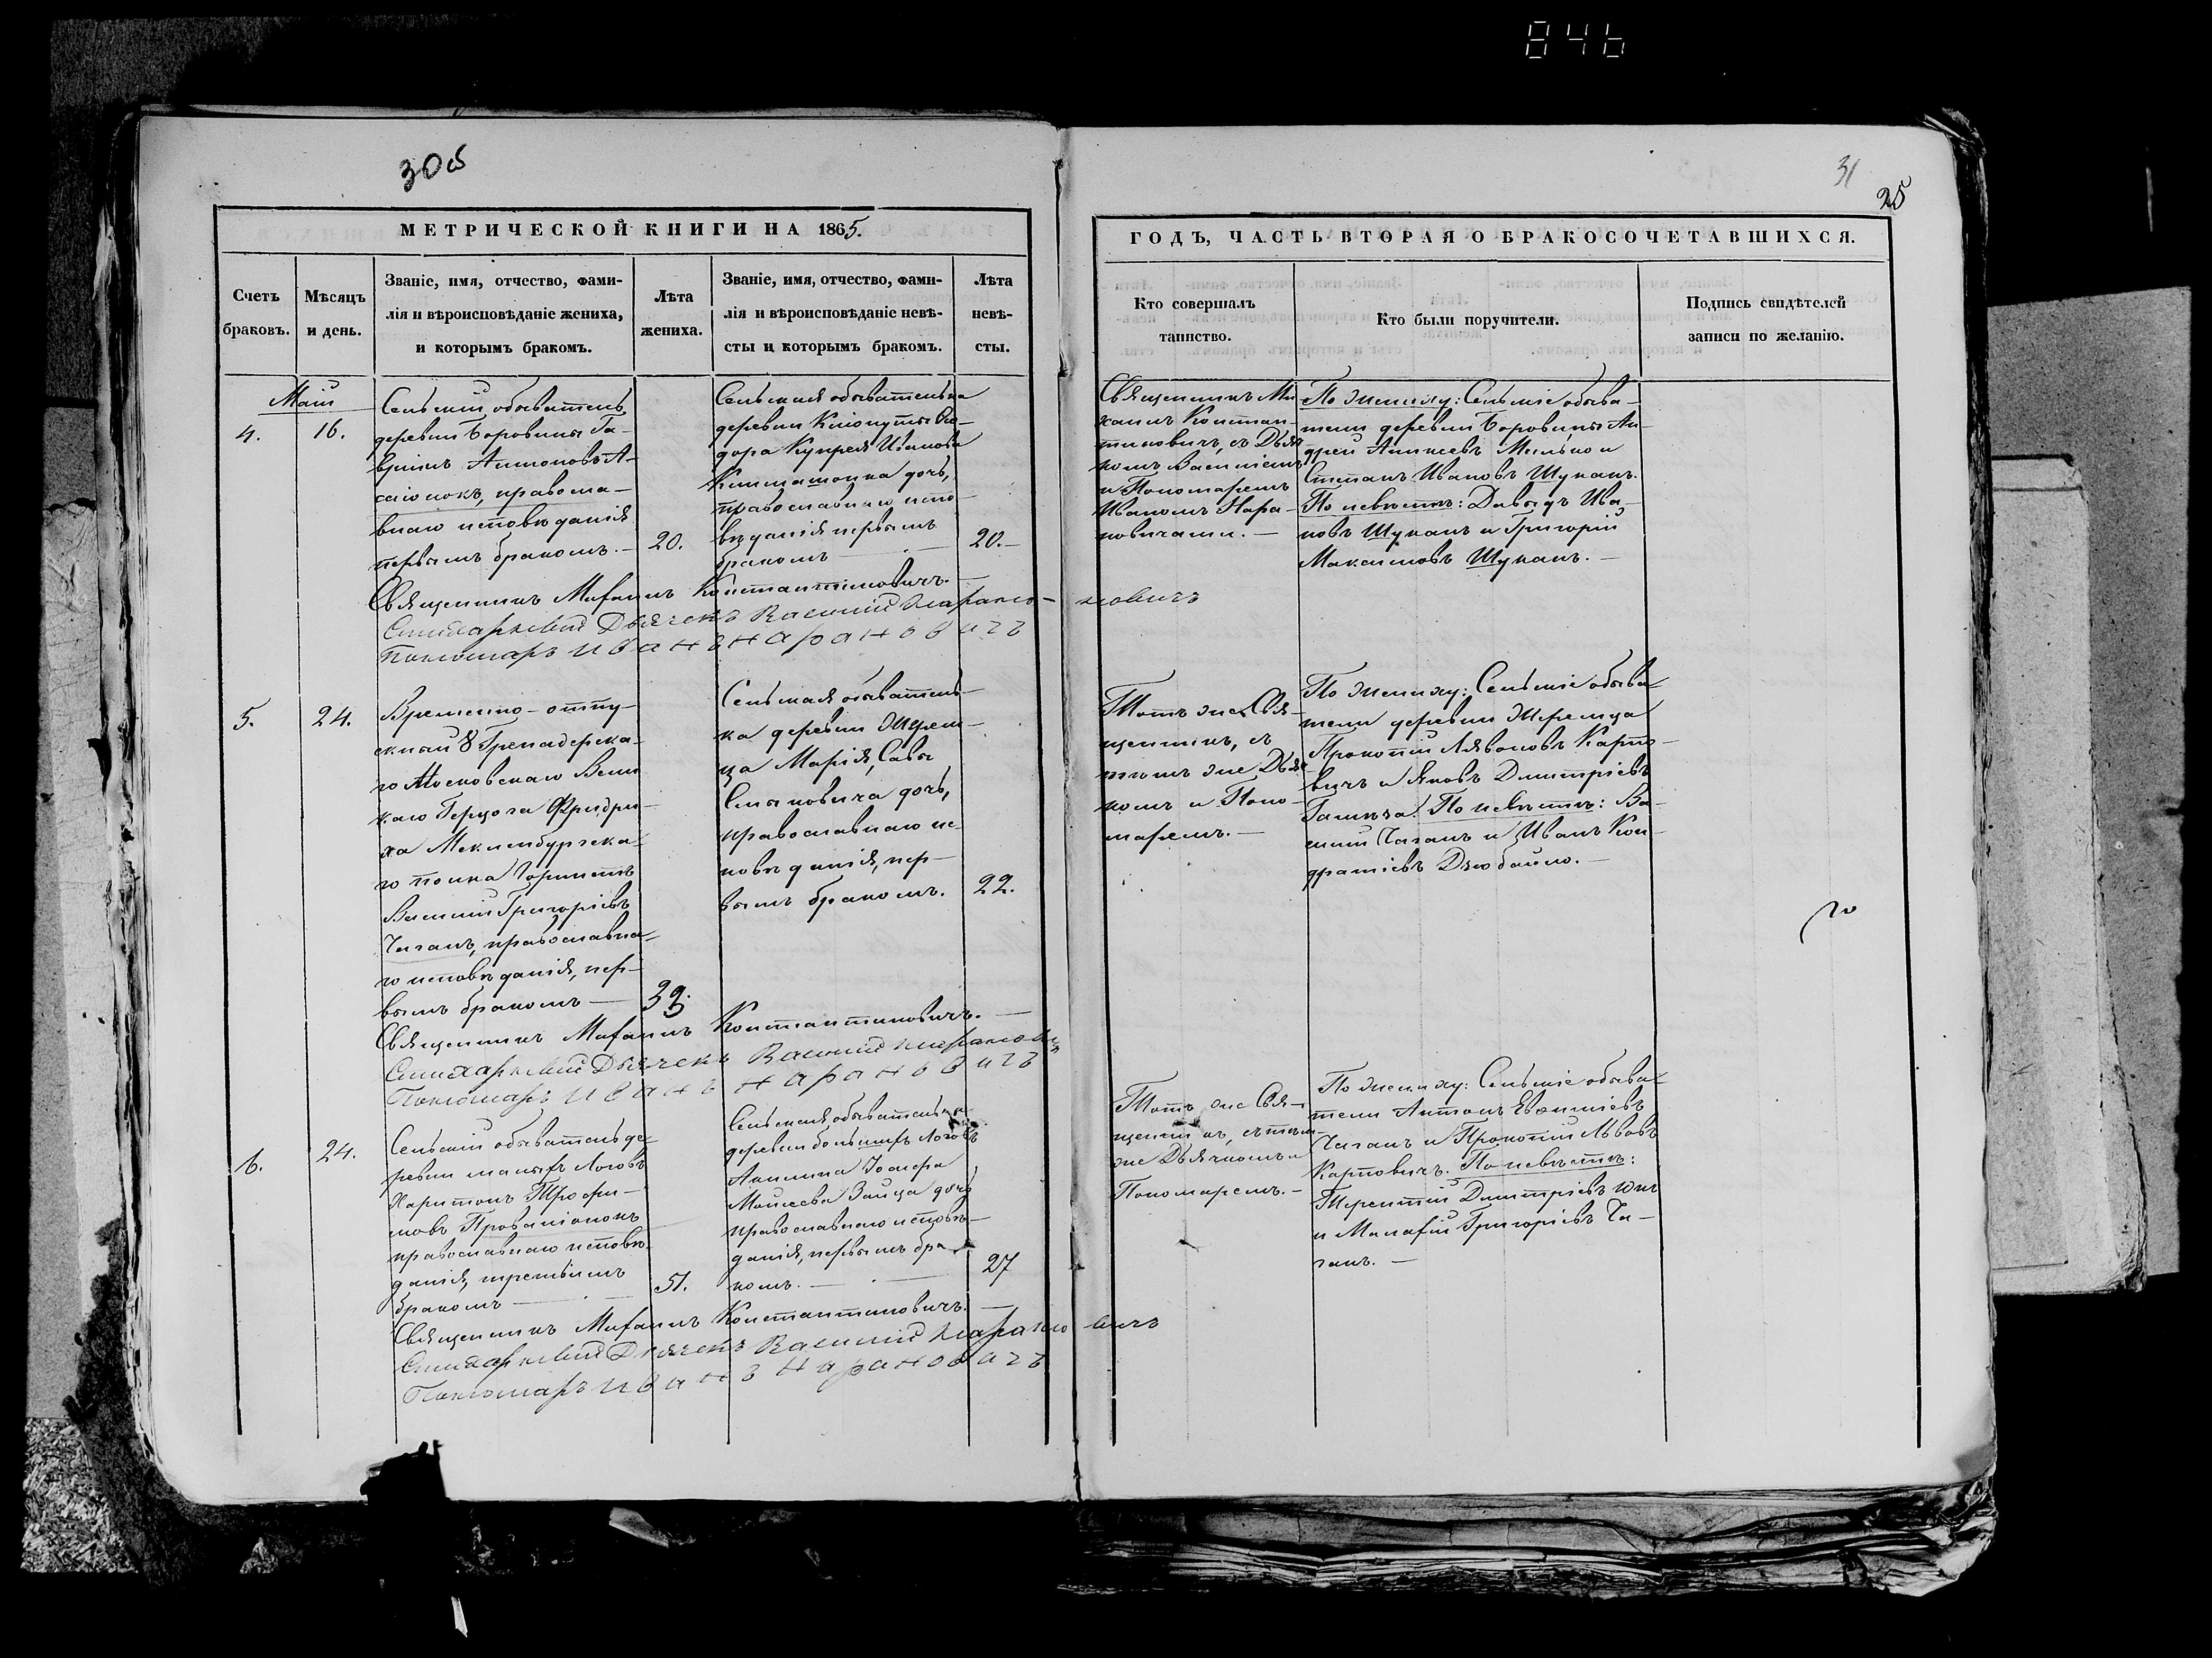 846
30об
31
25
МЕТРИЧЕСКОЙ КНИГИ НА 1865.
Счетъ
браковъ.
Мѣсяцъ
и день.
Званіе, имя, отчество, фами-
лія и вѣроисповѣданіе жениха,
и которымъ бракомъ.
Лѣта
жениха.
Званіе, имя, отчество, фами-
лія и вѣроисповѣданіе невѣ-
сты и которымъ бракомъ.
Лѣта
невѣ-
сты.
ГОДЪ, ЧАСТЬ ВТОРАЯ О БРАКОСОЧЕТАВШИХСЯ.
Кто совершалъ
таинство.
Кто были поручители.
Подпись свидѣтелей
записи по желанію.
Маій
4.
16.
Сельскій обыватель
деревни Боровины Га-
вріилъ Антоновъ А-
православ-
наго исповѣданія
первымъ бракомъ. —
20.
Сельская обывателька
деревни
дора Купрея Иванова
дочь,
православнаго испо-
вѣданія первымъ
бракомъ —
20. —
Священникъ Ми-
хаилъ Констан-
тиновичъ, съ Дьяч-
комъ Василіемъ
и Пономаремъ
Иваномъ Нара-
новичами. —
По жениху: Сельскіе обыва-
тели деревни Боровины Ан-
дрей
Степанъ Ивановъ Шуканъ.
По невѣстѣ: Давыдъ Ива-
новъ Шуканъ и Григорій
Максимовъ Шуканъ. —
Священникъ Михаилъ Константиновичъ. —
Стихарный Дьячекъ Василій Нарановичъ
Пономарь Иванъ Нарановичъ
5.
24.
Временно-отпу-
скный 8 Гренадерска-
го Московскаго Вели-
каго Герцога Фридри-
ха Мекленбургска-
го полка Горнистъ
Василій Григорьевъ
Чаганъ, православна-
го исповѣданія, пер-
вымъ бракомъ —
Сельская обыватель-
ка деревни Жереб-
ца Марія, Савы
дочь,
православнаго ис-
повѣданія, пер-
вымъ бракомъ.
22.
Тотъ же Свя-
щенникъ, съ
тѣмъ же Дьяч-
комъ и Поно-
маремъ. —
По жениху: Сельскіе обыва-
тели деревни
Прокопій Карпо-
вичъ и Яковъ Димитріевъ
По невѣстѣ: Ва-
силій Чаганъ и Иванъ Кон-
дратіевъ
Священникъ Михаилъ Константиновичъ. —
Стихарный Дьячекъ Василій Нарановичъ
Пономарь Иванъ Нарановичъ
6.
24.
Сельскій обыватель де-
ревни малыхъ Логовъ
Харитонъ Трофи-
мовъ
православнаго исповѣ-
данія, третьимъ
бракомъ —
51.
Сельская обывателька
деревни большихъ Логовъ
Акилина
Моисеева Зайца дочь
православнаго исповѣ-
данія, первымъ бра-
комъ. —
27
Тотъ же Свя-
щенникъ, съ тѣмъ
же Дьячкомъ и
Пономаремъ. —
По жениху: Сельскіе обыва-
тели Антонъ Евфиміевъ
Чаганъ и Прокопій Львовъ
Карповичъ. По невѣстѣ:
Терентій Димитріевъ
и Малафій Григоріевъ Ча-
ганъ. —
Священникъ Михаилъ Константиновичъ. —
Стихарный Дьячекъ Василій Нарановичъ
Пономарь Иванъ Нарановичъ